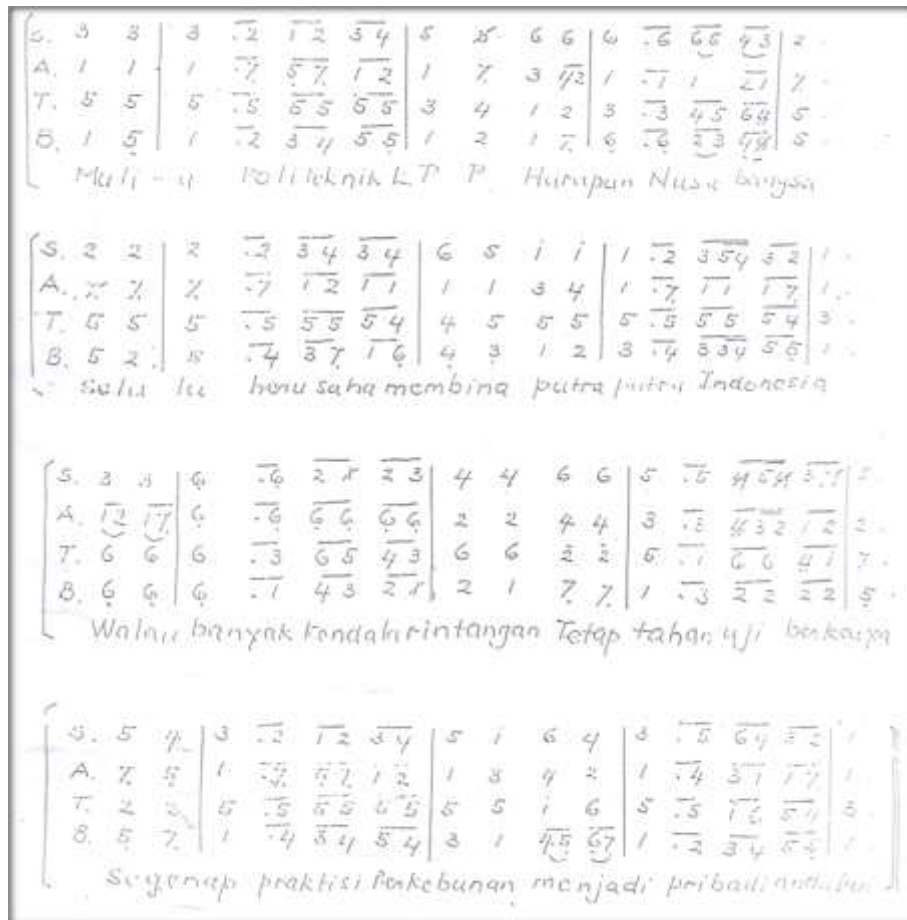 S. 3 3 | 3 .2 1 2 3 4 | 5 5 6 6 | 6 .6 6 5 4 3 | 2 .
A. 1 1 | 1 .7 5 7 1 2 | 1 7 3 42 | 1 .1 1 21 | 7 .
T. 5 5 | 5 .5 5 5 5 5 | 3 4 1 2 | 3 .3 4 5 6 4 | 5 .
B. 1 5 | 1 .2 3 4 5 5 | 1 2 1 7 | 6 .6 2 3 4 4 | 5 .
Politeknik L P P Harapan Nusa bangsa
S. 2 2 | 2 .2 3 4 3 4 | 6 5 i i | 1 .2 3 5 4 3 2 | 1 .
A. 7 7 | 7 .7 1 2 1 1 | 1 1 3 4 | 1 .7 1 1 1 7 | 1 .
T. 5 5 | 5 .5 5 5 5 4 | 4 5 5 5 | 5 .5 5 5 5 4 | 3 .
B. 5 2 | 5 .4 3 7 1 6 | 4 3 1 2 | 3 .4 3 3 4 5 5 | 1 .
berusaha membina putra putra Indonesia
S. 3 3 | 6 .6 2 1 2 3 | 4 4 6 6 | 5 .5 4 5 4 3 1 | 2 .
A. 1 2 1 7 | 6 .6 6 6 6 6 | 2 2 4 4 | 3 .3 4 3 2 1 2 | 2 .
T. 6 6 | 6 .3 6 5 4 3 | 6 6 2 2 | 5 .1 6 6 4 1 | 7 .
B. 6 6 | 6 .1 4 3 2 1 | 2 1 7 7 | 1 .3 2 2 2 2 | 5 .
Walau banyak kendala rintangan Tetap tahan uji berkarya
S. 5 4 | 3 .2 1 2 3 4 | 5 1 6 4 | 3 .5 6 4 3 2 | 1
A. 7 5 | 1 .7 5 7 1 2 | 1 3 4 2 | 1 .4 3 1 1 7 | 1
T. 2 2 | 5 .5 5 5 5 5 | 5 5 i 6 | 5 .5 1 6 5 4 | 3 .
B. 5 7 | 1 .4 3 4 5 4 | 3 1 4 5 6 7 | 1 .2 3 4 5 5 | 1
Segenap praktisi Perkebunan menjadi pribadi andalan